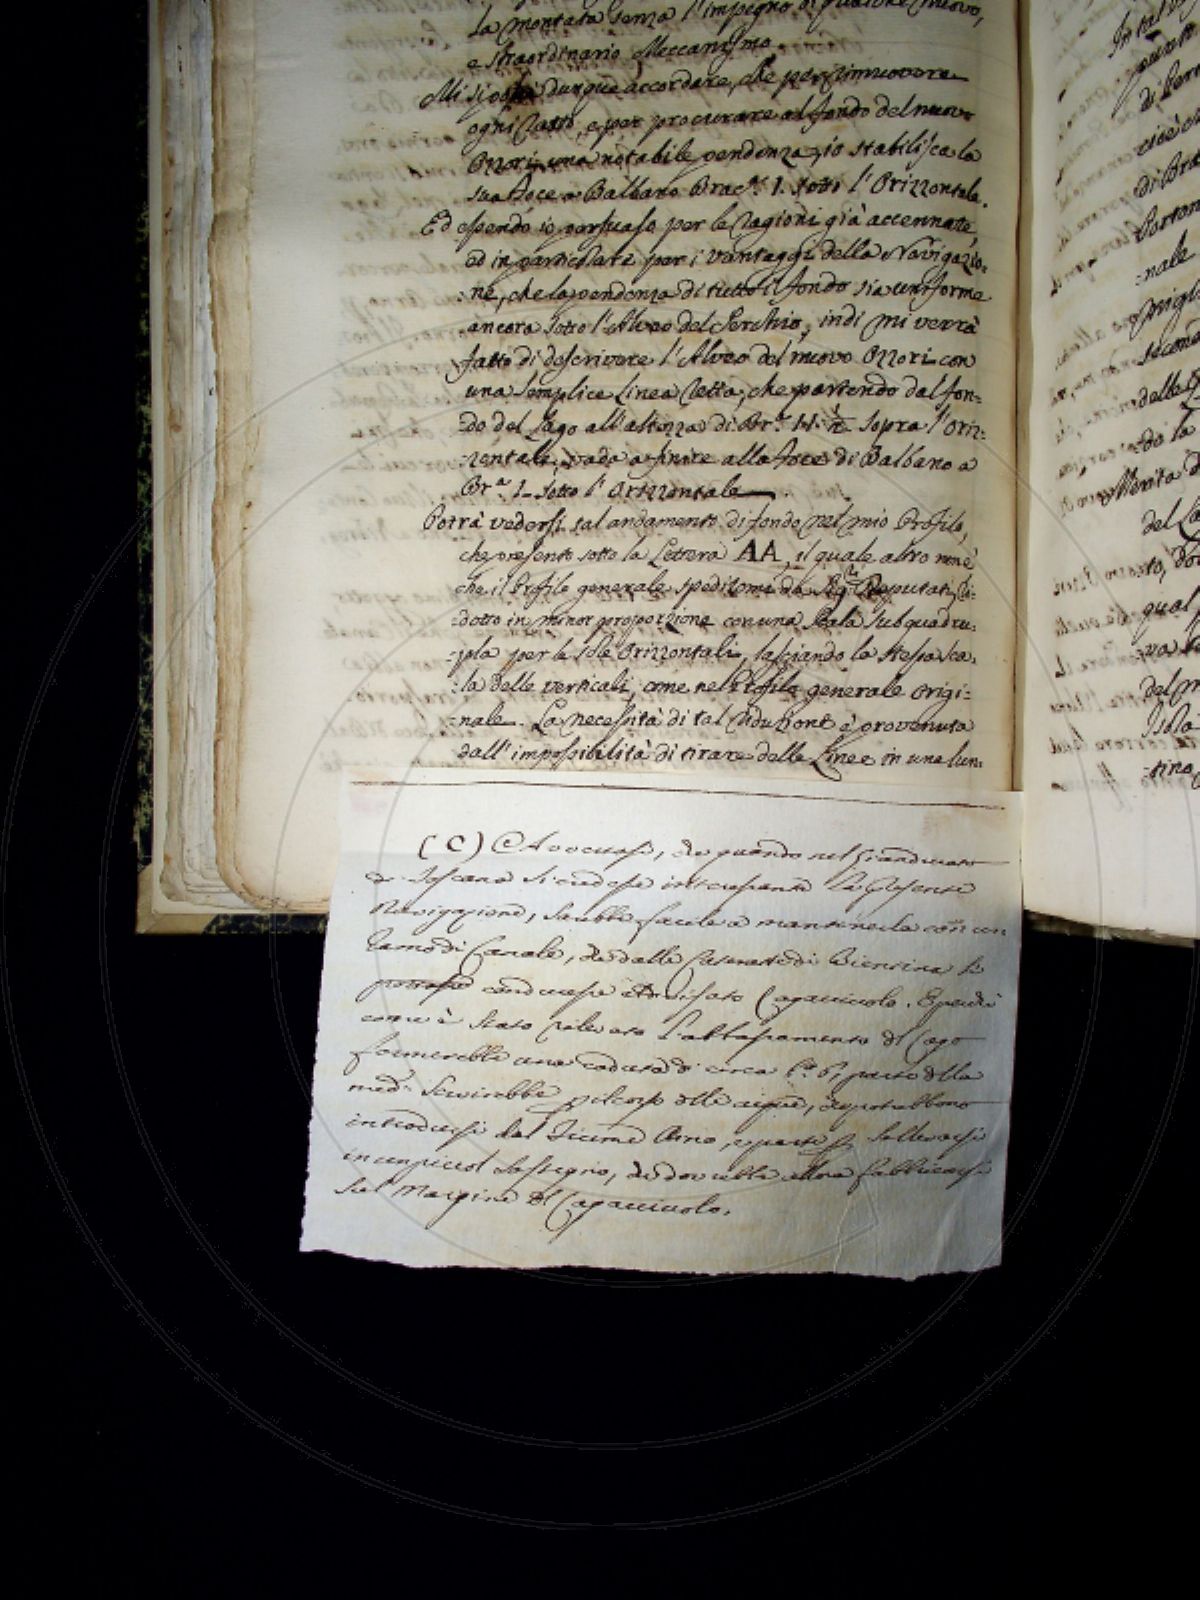 la montata senza l'impegno di qualche nuovo,
e straordinario Meccanismo.
Mi si potrà dunque accordare, che per rimuovere
ogni ratto, e per procurare al fondo del nuovo
Ozzori una notabile pendenza, io stabilisca la
sua Foce a Balbano Brac.ª 1. sotto l'Orizzontale.
Ed essendo io persuaso per le ragioni già accennate,
ed in particolare per i vantaggi della Navigazio=
=ne, che la pendenza di tutto il fondo sia uniforme
ancora sotto l'Alveo del Serchio, indi mi verrà
fatto di descrivere l'Alveo del nuovo Ozzori con
una semplice Linea retta, che partendo dal fon=
=do del Lago all'altezza di Br.ª sopra l'Oriz=
=zontale, vada a finire alla foce di Balbano a
Br.ª 1. sotto l'Orizzontale.
Potrà vedersi tal andamento di fondo nel mio Profilo,
che presento sotto la Lettera AA, il quale altro non è
che il Profilo generale speditomi da Sig.ri Deputati, ri=
=dotto in minor proporzione con una Scala subquadru=
=pla per le sole Orizzontali, lasciando la stessa sca=
=la delle verticali, come nel Profilo generale origi=
=nale. La necessità di tal riduzione è provenuta
dall'impossibilità di tirare delle Linee in una lun=
(C) che quando nel Granducato
di Toscana si credesse interessante la presente
Navigazione, sarebbe facile a mantenerla con un
Ramo di Canale, che dalle Cateratte di Bientina si
potesse condurre Lagacciuolo. E perchè
come è stato rilevato l'abbassamento del Lago
formerebbe una caduta di circa b.ª 6, parte della
med.ª servirebbe p il corso delle acque, che potrebbono
introdursi dal Fiume Arno, e parte p sollevarsi
in un piccol sostegno, che dovrebbe allora fabbricarsi
sul Margine del Lagacciuolo.
In tal
di
cioè
di Bra
=nale
second
delle
=do la
Merita
del La
qual
del m
Isola
=tino